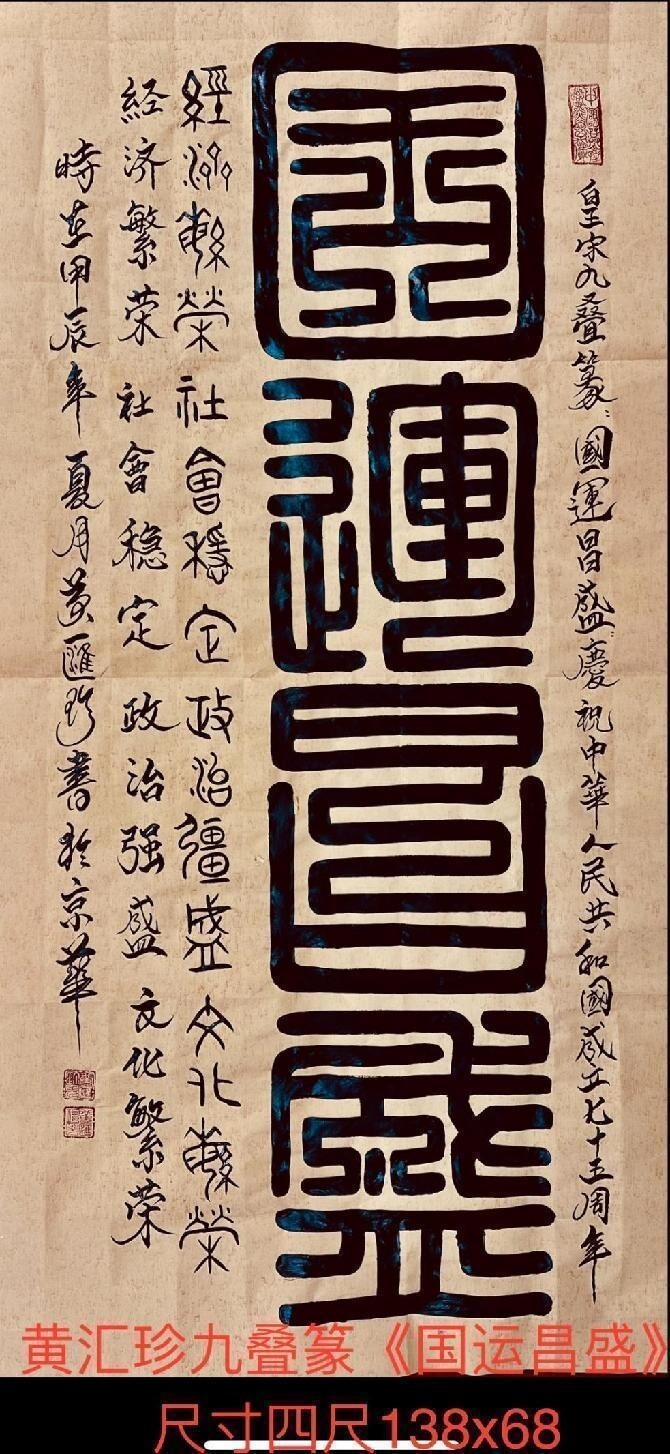 皇宋九叠篆：國運昌盛：慶祝中華人民共和國成立七十五周年
國運昌盛
經濟繁榮 社會穩定 政治彊盛 文化繁榮
经济繁荣 社會稳定 政治强盛 文化繁荣
時在甲辰年夏月黄匯珍書於京華
黄汇珍九叠篆《国运昌盛》
尺寸四尺138x68